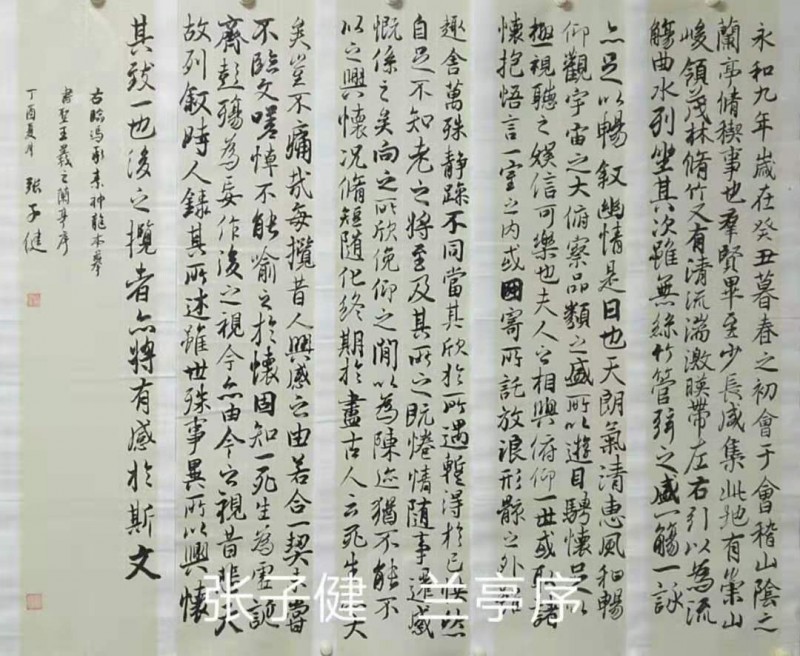 永和九年歲在癸丑暮春之初會于會稽山陰之
蘭亭脩禊事也羣賢畢至少長咸集此地有崇山
峻領茂林脩竹又有清流湍激暎帶左右引以為流
觴曲水列坐其次雖無絲竹管弦之盛一觴一詠
亦足以暢叙幽情是日也天朗氣清惠風和暢
仰觀宇宙之大俯察品類之盛所以遊目騁懷足以
極視聽之娛信可樂也夫人之相與俯仰一世或取諸
懷抱悟言一室之內或因寄所託放浪形骸之外雖
趣舍萬殊靜躁不同當其欣於所遇蹔得於己怏然
自足不知老之將至及其所之既惓情隨事遷感
慨係之矣向之所欣俛仰之閒以為陳迹猶不能不
以之興懷況脩短隨化終期於盡古人云死生亦大
矣豈不痛哉每攬昔人興感之由若合一契未嘗
不臨文嗟悼不能喻之於懷固知一死生為虛誕
齊彭殤為妄作後之視今亦由今之視昔悲夫
故列叙時人錄其所述雖世殊事異所以興懷
其致一也後之攬者亦將有感於斯文
右臨馮承素神龍本摹
書聖王羲之蘭亭序
丁酉夏月 張子健
张子健 兰亭序